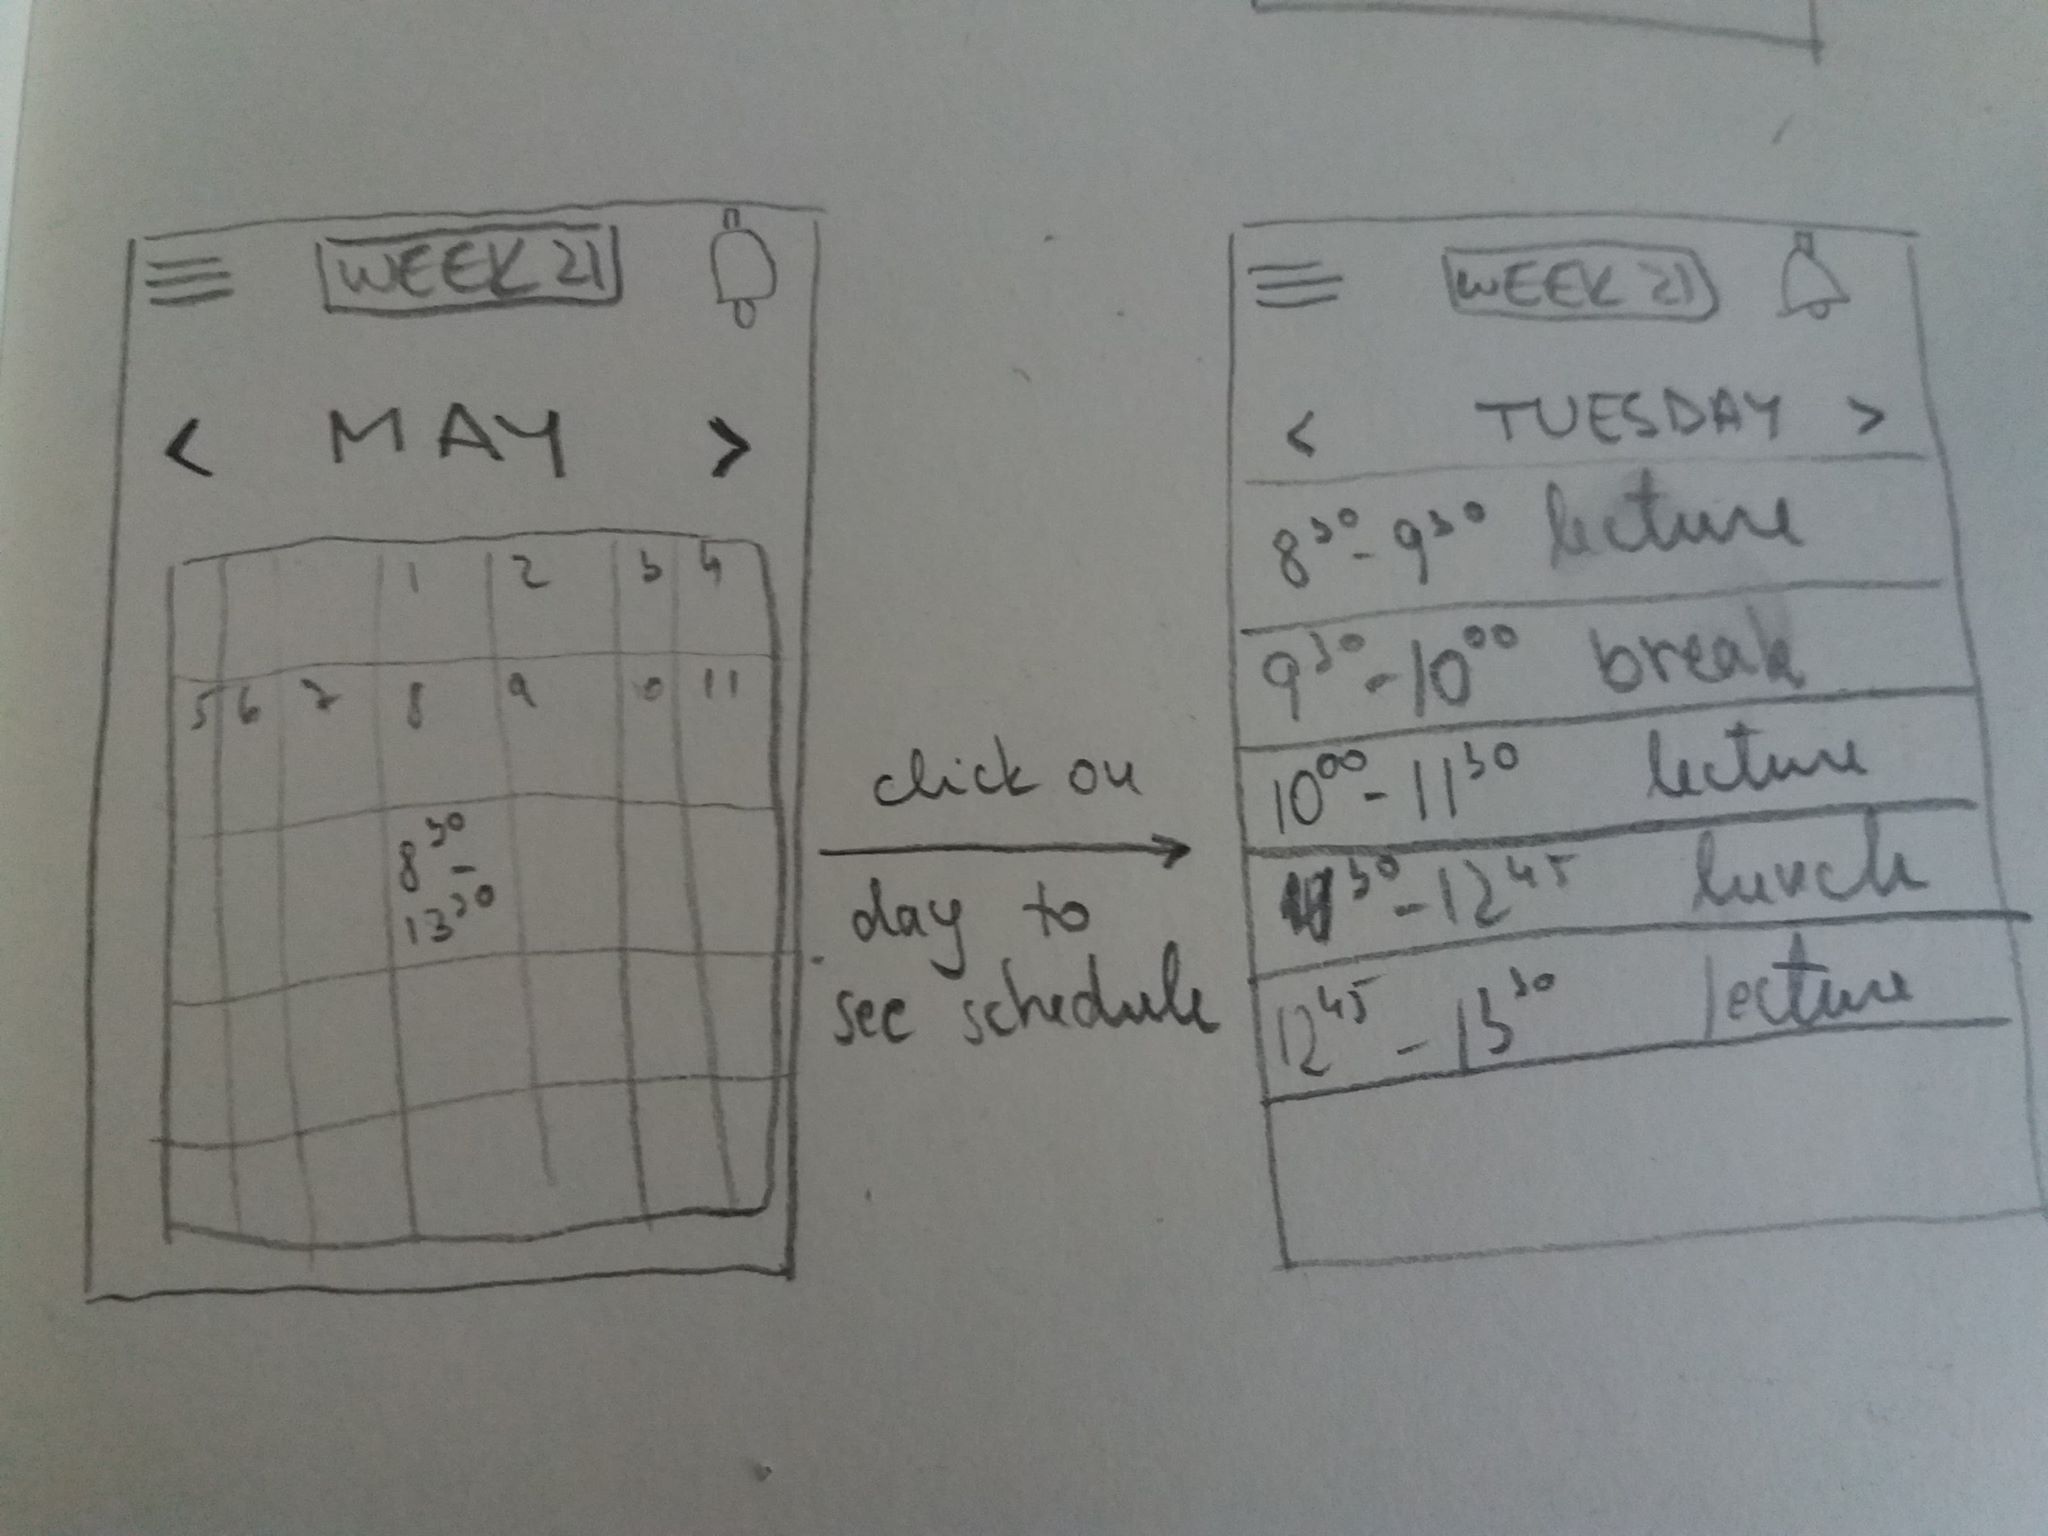 WEEK 21
< MAY >
1 2 3 4
5 6 7 8 9 10 11
8 30 -
13 30
click on
day to
see schedule
WEEK 21
< TUESDAY >
8 30 - 9 30 lecture
9 30 - 10 00 break
10 00 - 11 30 lecture
11 30 - 12 45 lunch
12 45 - 13 30 lecture